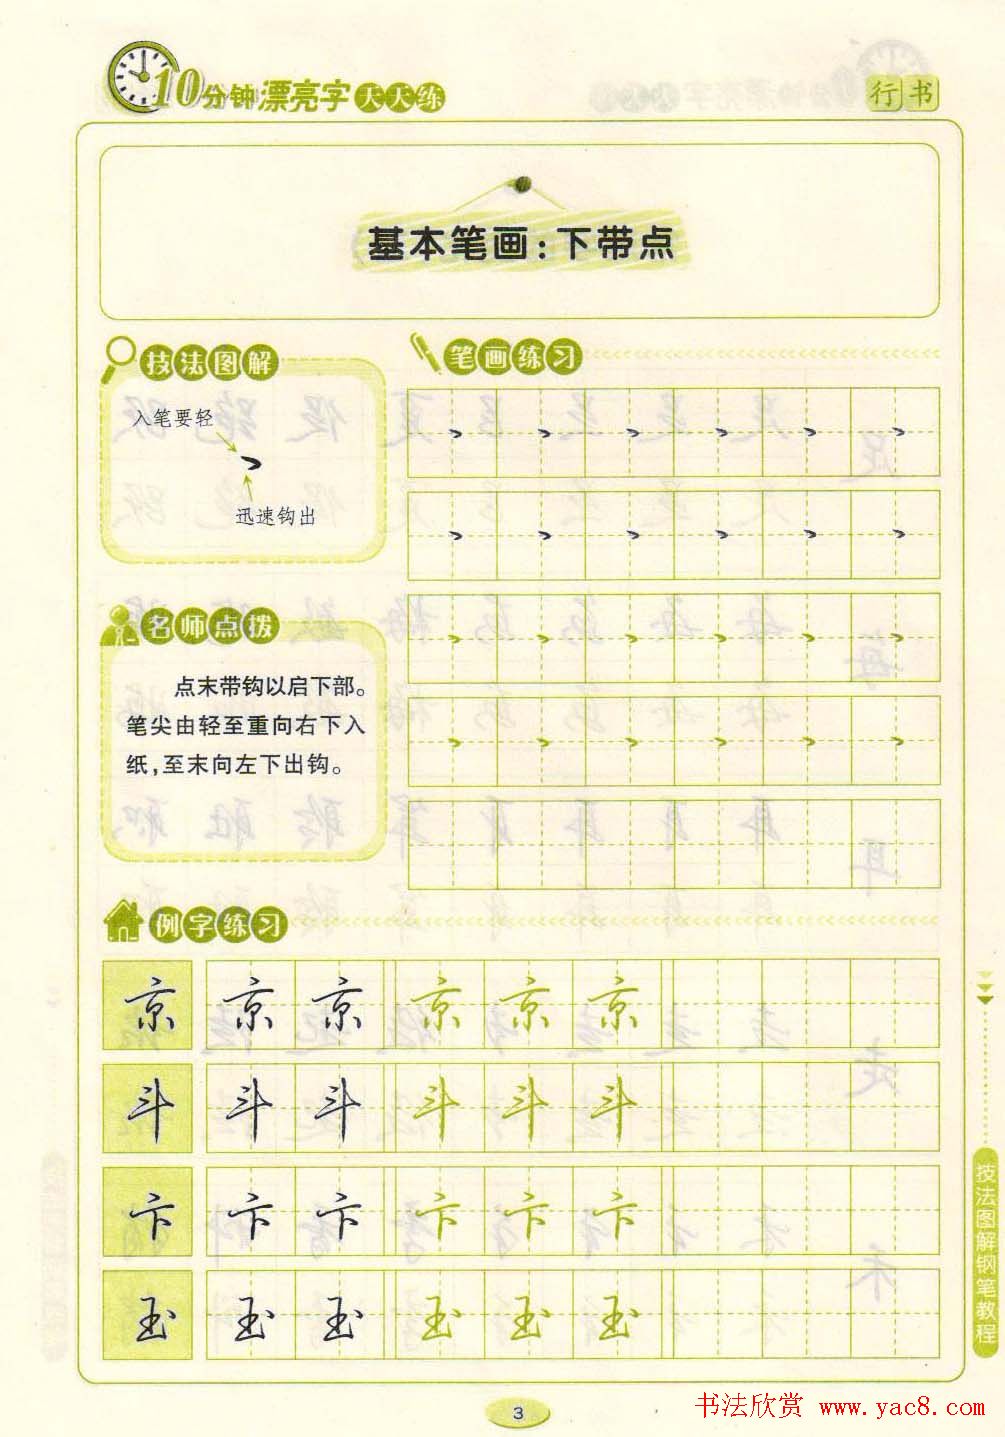 10分钟漂亮字天天练
行书
基本笔画:下带点
技法图解
入笔要轻
迅速钩出
笔画练习
名师点拨
点末带钩以启下部。
笔尖由轻至重向右下入
纸,至末向左下出钩。
例字练习
京 京 京 京 京 京
斗 斗 斗 斗 斗 斗
卞 卞 卞 卞 卞 卞
玉 玉 玉 玉 玉 玉
技法图解钢笔教程
3
书法欣赏 www.yac8.com